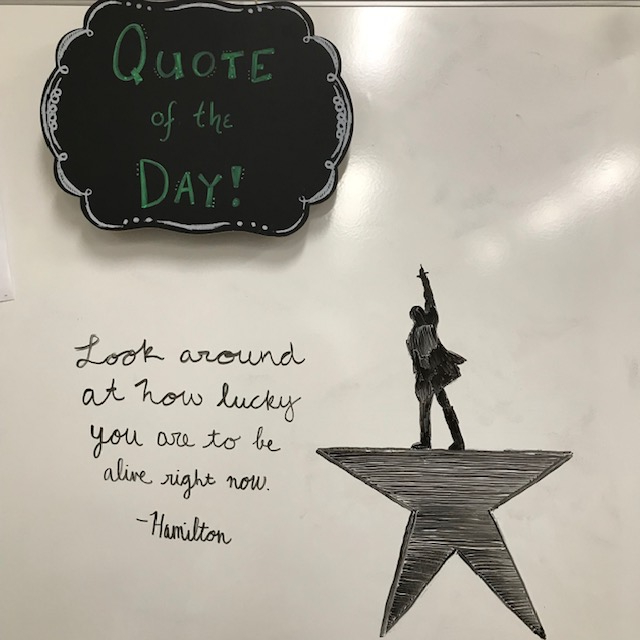 QUOTE
of the
DAY!
Look around
at how lucky
you are to be
alive right now.
-Hamilton